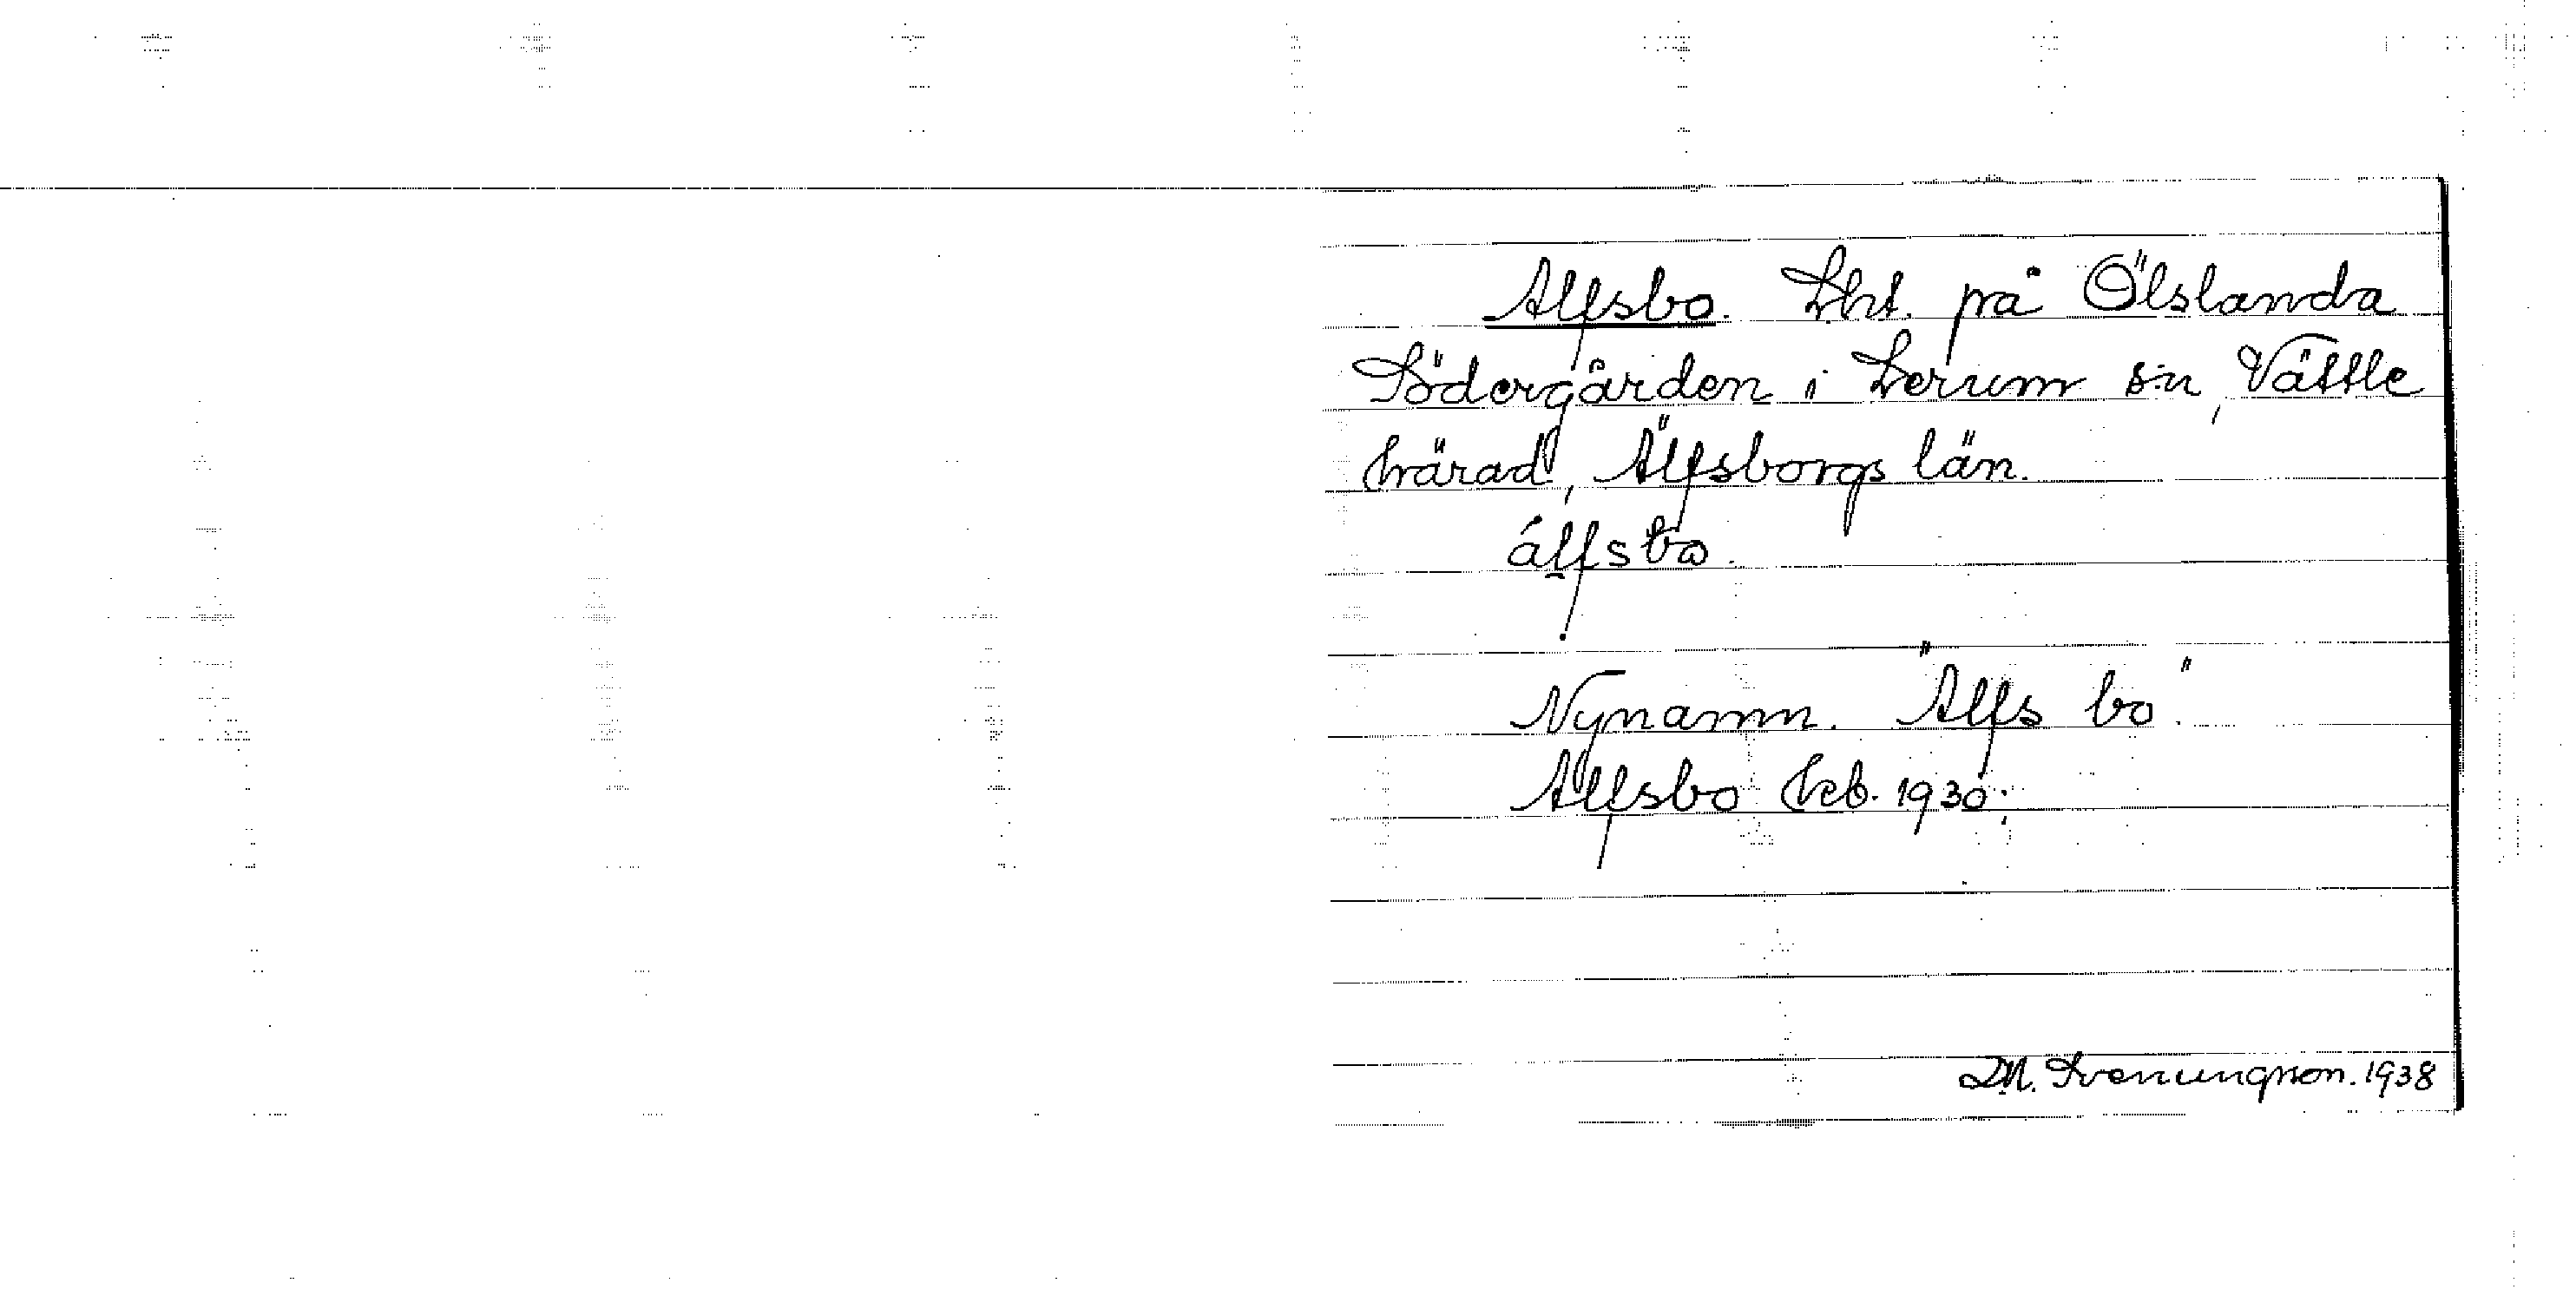 Alfsbo. Lht. på Ölslanda
Södergården i Lerum sn, Vättle
härad, Älfsborgs län.
álfsbo.
Nynamn. "Alfs bo".
Alfsbo heb. 1930.
D.M. Svenungsson. 1938